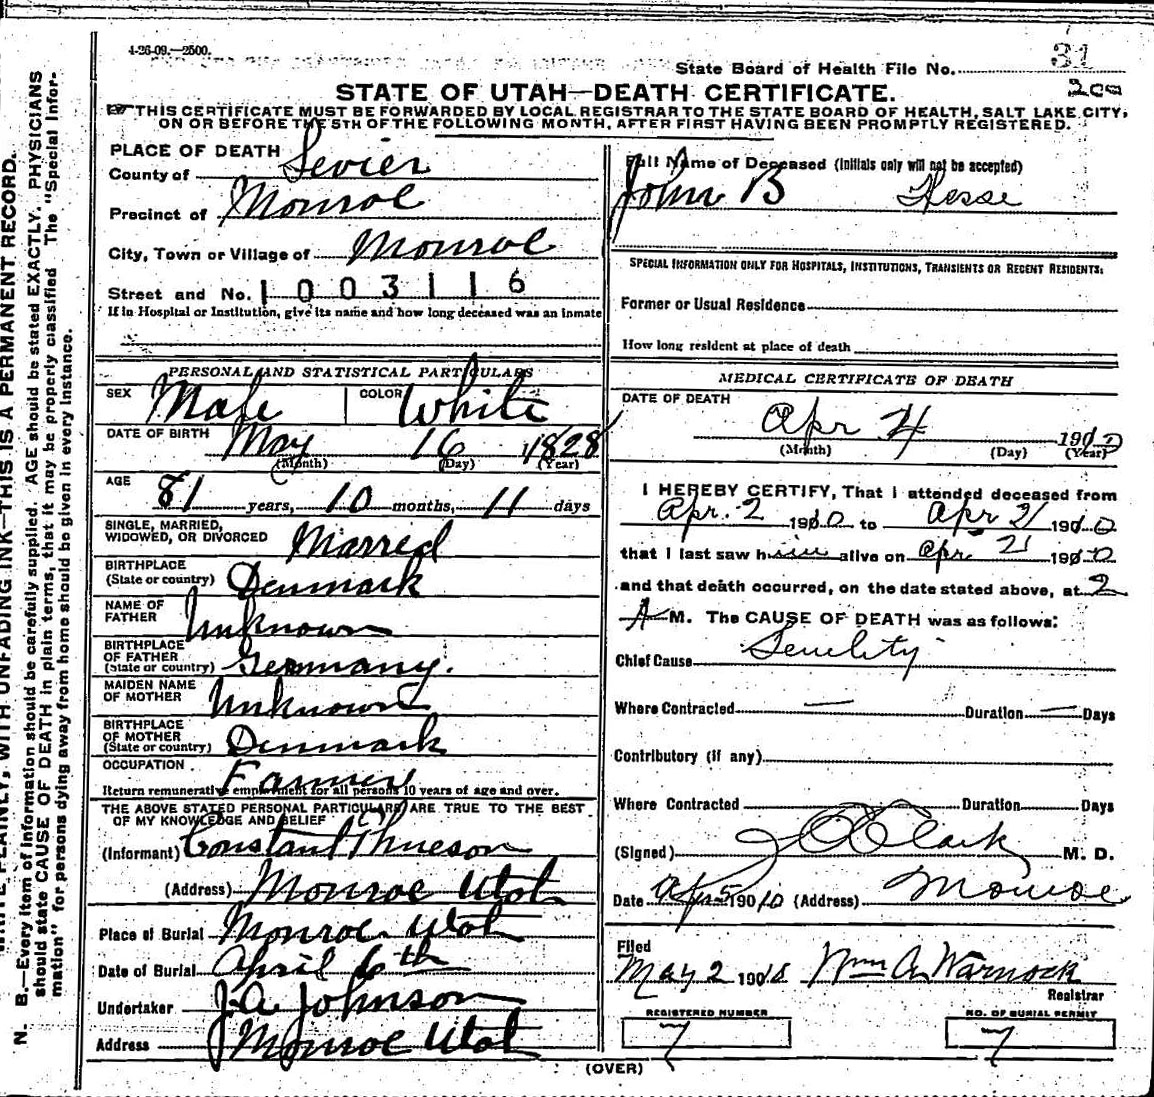 4-26-09.—2500.
State Board of Health File No. 31
200
STATE OF UTAH—DEATH CERTIFICATE.
THIS CERTIFICATE MUST BE FORWARDED BY LOCAL REGISTRAR TO THE STATE BOARD OF HEALTH, SALT LAKE CITY,
ON OR BEFORE THE 5TH OF THE FOLLOWING MONTH, AFTER FIRST HAVING BEEN PROMPTLY REGISTERED.
PLACE OF DEATH
County of Sevier
Precinct of Monroe
City, Town or Village of Monroe
Street and No. 1003116
If in Hospital or Institution, give its name and how long deceased was an inmate
PERSONAL AND STATISTICAL PARTICULARS
SEX Male COLOR White
DATE OF BIRTH May 16 1828
(Month) (Day) (Year)
AGE 81 years, 10 months, 11 days
SINGLE, MARRIED,
WIDOWED, OR DIVORCED Marred
BIRTHPLACE
(State or country) Denmark
NAME OF
FATHER Unknown
BIRTHPLACE
OF FATHER
(State or country) Germany.
MAIDEN NAME
OF MOTHER Unknown
BIRTHPLACE
OF MOTHER
(State or country) Denmark
OCCUPATION Farmer
Return remunerative employment for all persons 10 years of age and over.
THE ABOVE STATED PERSONAL PARTICULARS ARE TRUE TO THE BEST
OF MY KNOWLEDGE AND BELIEF
(Informant) Constant Thueson
(Address) Monroe Utah
Place of Burial Monroe Utah
Date of Burial April 6th
Undertaker J. A. Johnson
Address Monroe Utah
Full Name of Deceased (Initials only will not be accepted)
John B Hesse
SPECIAL INFORMATION ONLY FOR HOSPITALS, INSTITUTIONS, TRANSIENTS OR RECENT RESIDENTS.
Former or Usual Residence
How long resident at place of death
MEDICAL CERTIFICATE OF DEATH
DATE OF DEATH
Apr 4 1910
(Month) (Day) (Year)
I HEREBY CERTIFY, That I attended deceased from
Apr. 2 1910 to Apr 21 1910
that I last saw him alive on Apr. 21 1910
and that death occurred, on the date stated above, at 2
A M. The CAUSE OF DEATH was as follows:
Chief Cause Senility
Where Contracted — Duration — Days
Contributory (if any)
Where Contracted Duration Days
(Signed) J Clark M. D.
Date Apr 5 1910 (Address) Monroe
Filed
May 2 1910 Wm A. Warnock
Registrar
REGISTERED NUMBER
7
NO. OF BURIAL PERMIT
7
(OVER)
WRITE PLAINLY, WITH UNFADING INK—THIS IS A PERMANENT RECORD.
N. B.—Every item of information should be carefully supplied. AGE should be stated EXACTLY. PHYSICIANS
should state CAUSE OF DEATH in plain terms, that it may be properly classified. The "Special Infor-
mation" for persons dying away from home should be given in every instance.